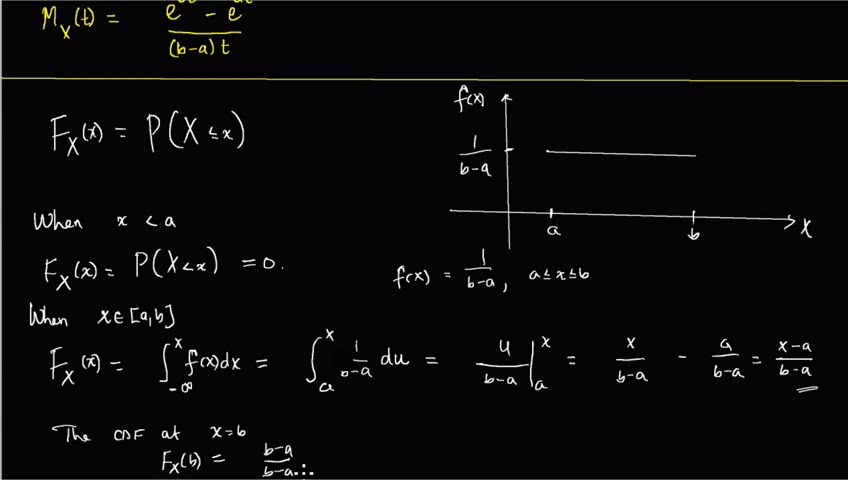 M_X(t) = (e − e) / ((b-a)t)
F_X(x) = P(X ≤ x)
f(x)
1/(b-a)
a
b
X
When x < a
F_X(x) = P(X<x) = 0.
f(x) = 1/(b-a), a≤x≤b
When x∈[a,b]
F_X(x) = ∫_{-∞}^{x} f(x)dx = ∫_{a}^{x} 1/(b-a) du = u/(b-a) |_{a}^{x} = x/(b-a) - a/(b-a) = (x-a)/(b-a)
The CDF at x=b
F_X(b) = (b-a)/(b-a)